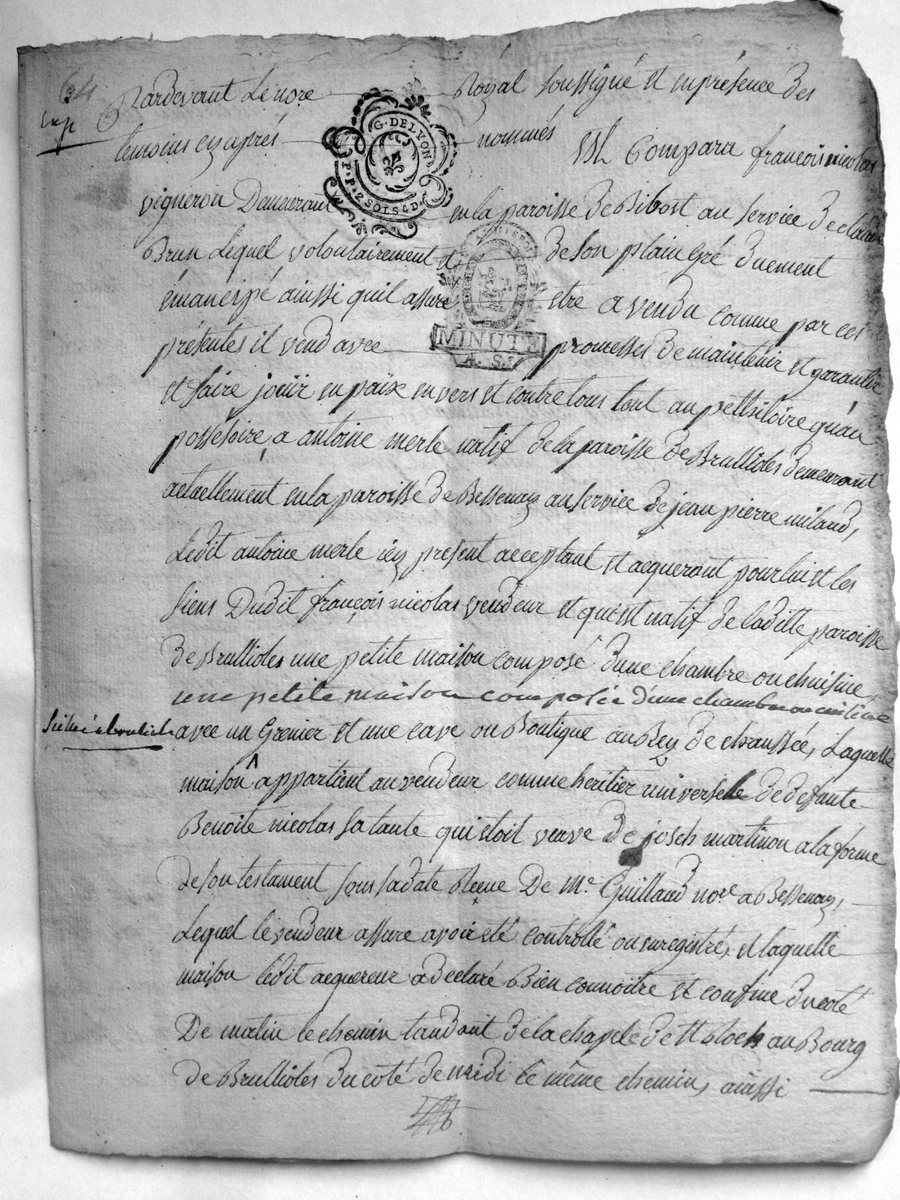 Exp
Pardevant Le nore Royal soussigné et en présence des
temoins cy après nommés
Est Comparu françois nicolas
G. DE LYON
P. P. 2 SOLS 4 D.
vigneron Demeurant en la paroisse de Bibost au service de claude
Brun Lequel volontairement et de son plain gré duement
émancipé ainssi quil assure etre a vendu comme par ces
MINUTE
A. S.
présentes il vend avec promesses de maintenir et garantir
et faire joüir en paix envers et contre tous tant au pettitoire quáu
possesoire, a antoine merle natif de la paroisse de Brullioles demeurant
actuellement en la paroisse de Bessenay au service de jean pierre milaud,
Ledit antoine merle icy present acceptant et acquerant pour lui et les
siens Dudit françois nicolas vendeur et qui est natif de laditte paroisse
de Brullioles une petite maison composé dune chambre ou chuisine
une petite maison composée d'une chambre ou cuisine
avec un Grenier et une cave ou Boutique au Rey de chaussée, Laquelle
maison ^ appartient au vendeur comme heritier universelle de defante
Benoite nicolas sa tante qui étoit veuve de joseh martinon a la forme
de son testament sous sa date Reçue De Me Guilland nore a Bessenay,
Lequel le vendeur assure avoir été controllé ou enregistré, et laquelle
maison ledit acquereur a declaré Bien connoitre et confine du coté
De matin le chemin tandant de la chapele de St Roch au Bourg
de Brullioles du coté de midi le même chemin, ainssi